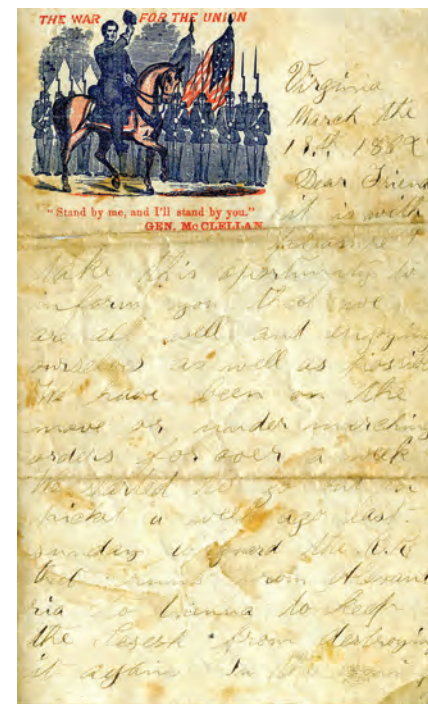 THE WAR FOR THE UNION
"Stand by me, and I'll stand by you."
GEN. McCLELLAN
Virginia
March the
Dear Friend
it is with
pleasure I
take this opertunity to
inform you that we
are all well and enjoying
ourselves as well as possib
We have been on the
move or under marching
orders for over a week
We started to go out on
picket a week ago last
sunday to guard the R.R
that runs from Alexand
ria to Vienna to keep
the Secesh from destroying
it again. In the